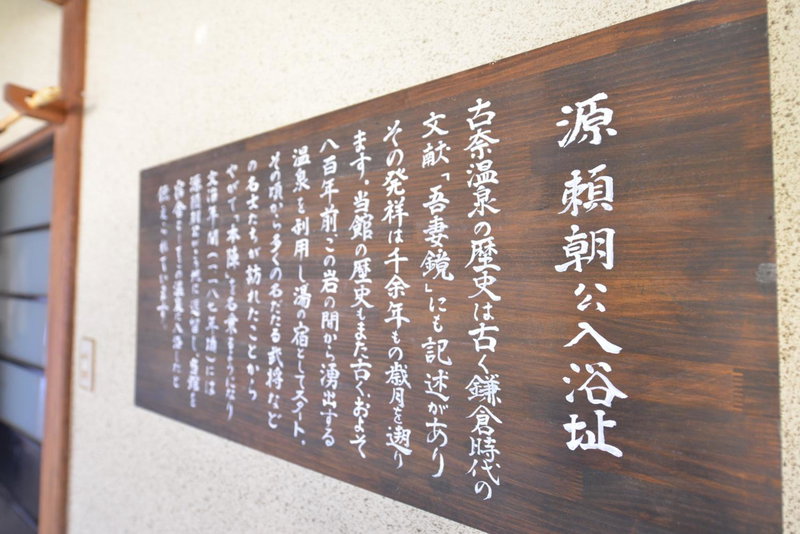 源頼朝公入浴址
古奈温泉の歴史は古く鎌倉時代の
文献「吾妻鏡」にも記述があり
その発祥は千余年もの歳月を遡り
ます。当館の歴史もまた古く、およそ
八百年前、この岩の間から湧出する
温泉を利用し湯の宿としてスイト。
その頃から多くの名だたる武将など
の名士たちが訪れたことから
やがて「本陣」を名乗るようになり
文治年間(一一八七年頃)には
源頼朝公
宿舎として 温泉に入浴したと
伝えられています。